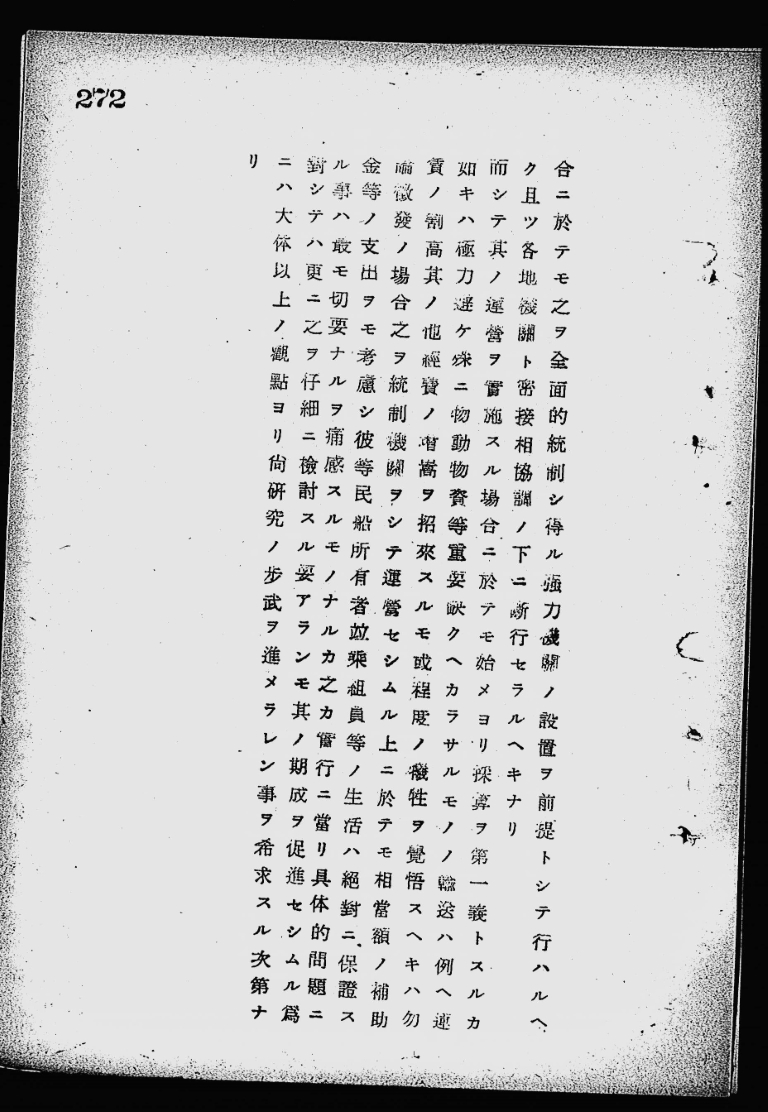 272
合ニ於テモ之ヲ全面的統制シ得ル强力機關ノ設置ヲ前提トシテ行ハルヘ
ク且ツ各地機關ト密接相協調ノ下ニ斷行セラルヘキナリ
而シテ其ノ運營ヲ實施スル場合ニ於テモ始メヨリ採算ヲ第一義トスルカ
如キハ極力避ケ殊ニ物動物資等重要缺クヘカラサルモノノ輸送ハ例ヘ運
賃ノ割高其ノ他經費ノ增嵩ヲ招來スルモ或程度ノ犧牲ヲ覺悟スヘキハ勿
論徵發ノ場合之ヲ統制機關ヲシテ運營セシムル上ニ於テモ相當額ノ補助
金等ノ支出ヲモ考慮シ彼等民船所有者並乘組員等ノ生活ハ絕對ニ保證ス
ル事ハ最モ切要ナルヲ痛感スルモノナルカ之カ實行ニ當リ具体的問題ニ
對シテハ更ニ之ヲ仔細ニ檢討スル要アランモ其ノ期成ヲ促進セシムル爲
ニハ大体以上ノ觀點ヨリ尙硏究ノ步武ヲ進メラレン事ヲ希求スル次第ナ
リ